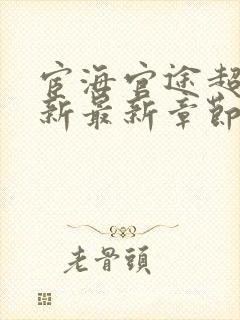 宦海官途超
新最新章節
老骨頭